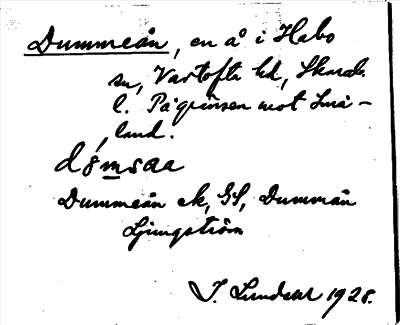 Dummeån, en å i Habo
sn, Vartofta hd, Skarab.
l. På gränsen mot Små-
land.
dömsaa
Dummeån ek, GS, Dummån
Ljungström
J. Lundahl 1928.